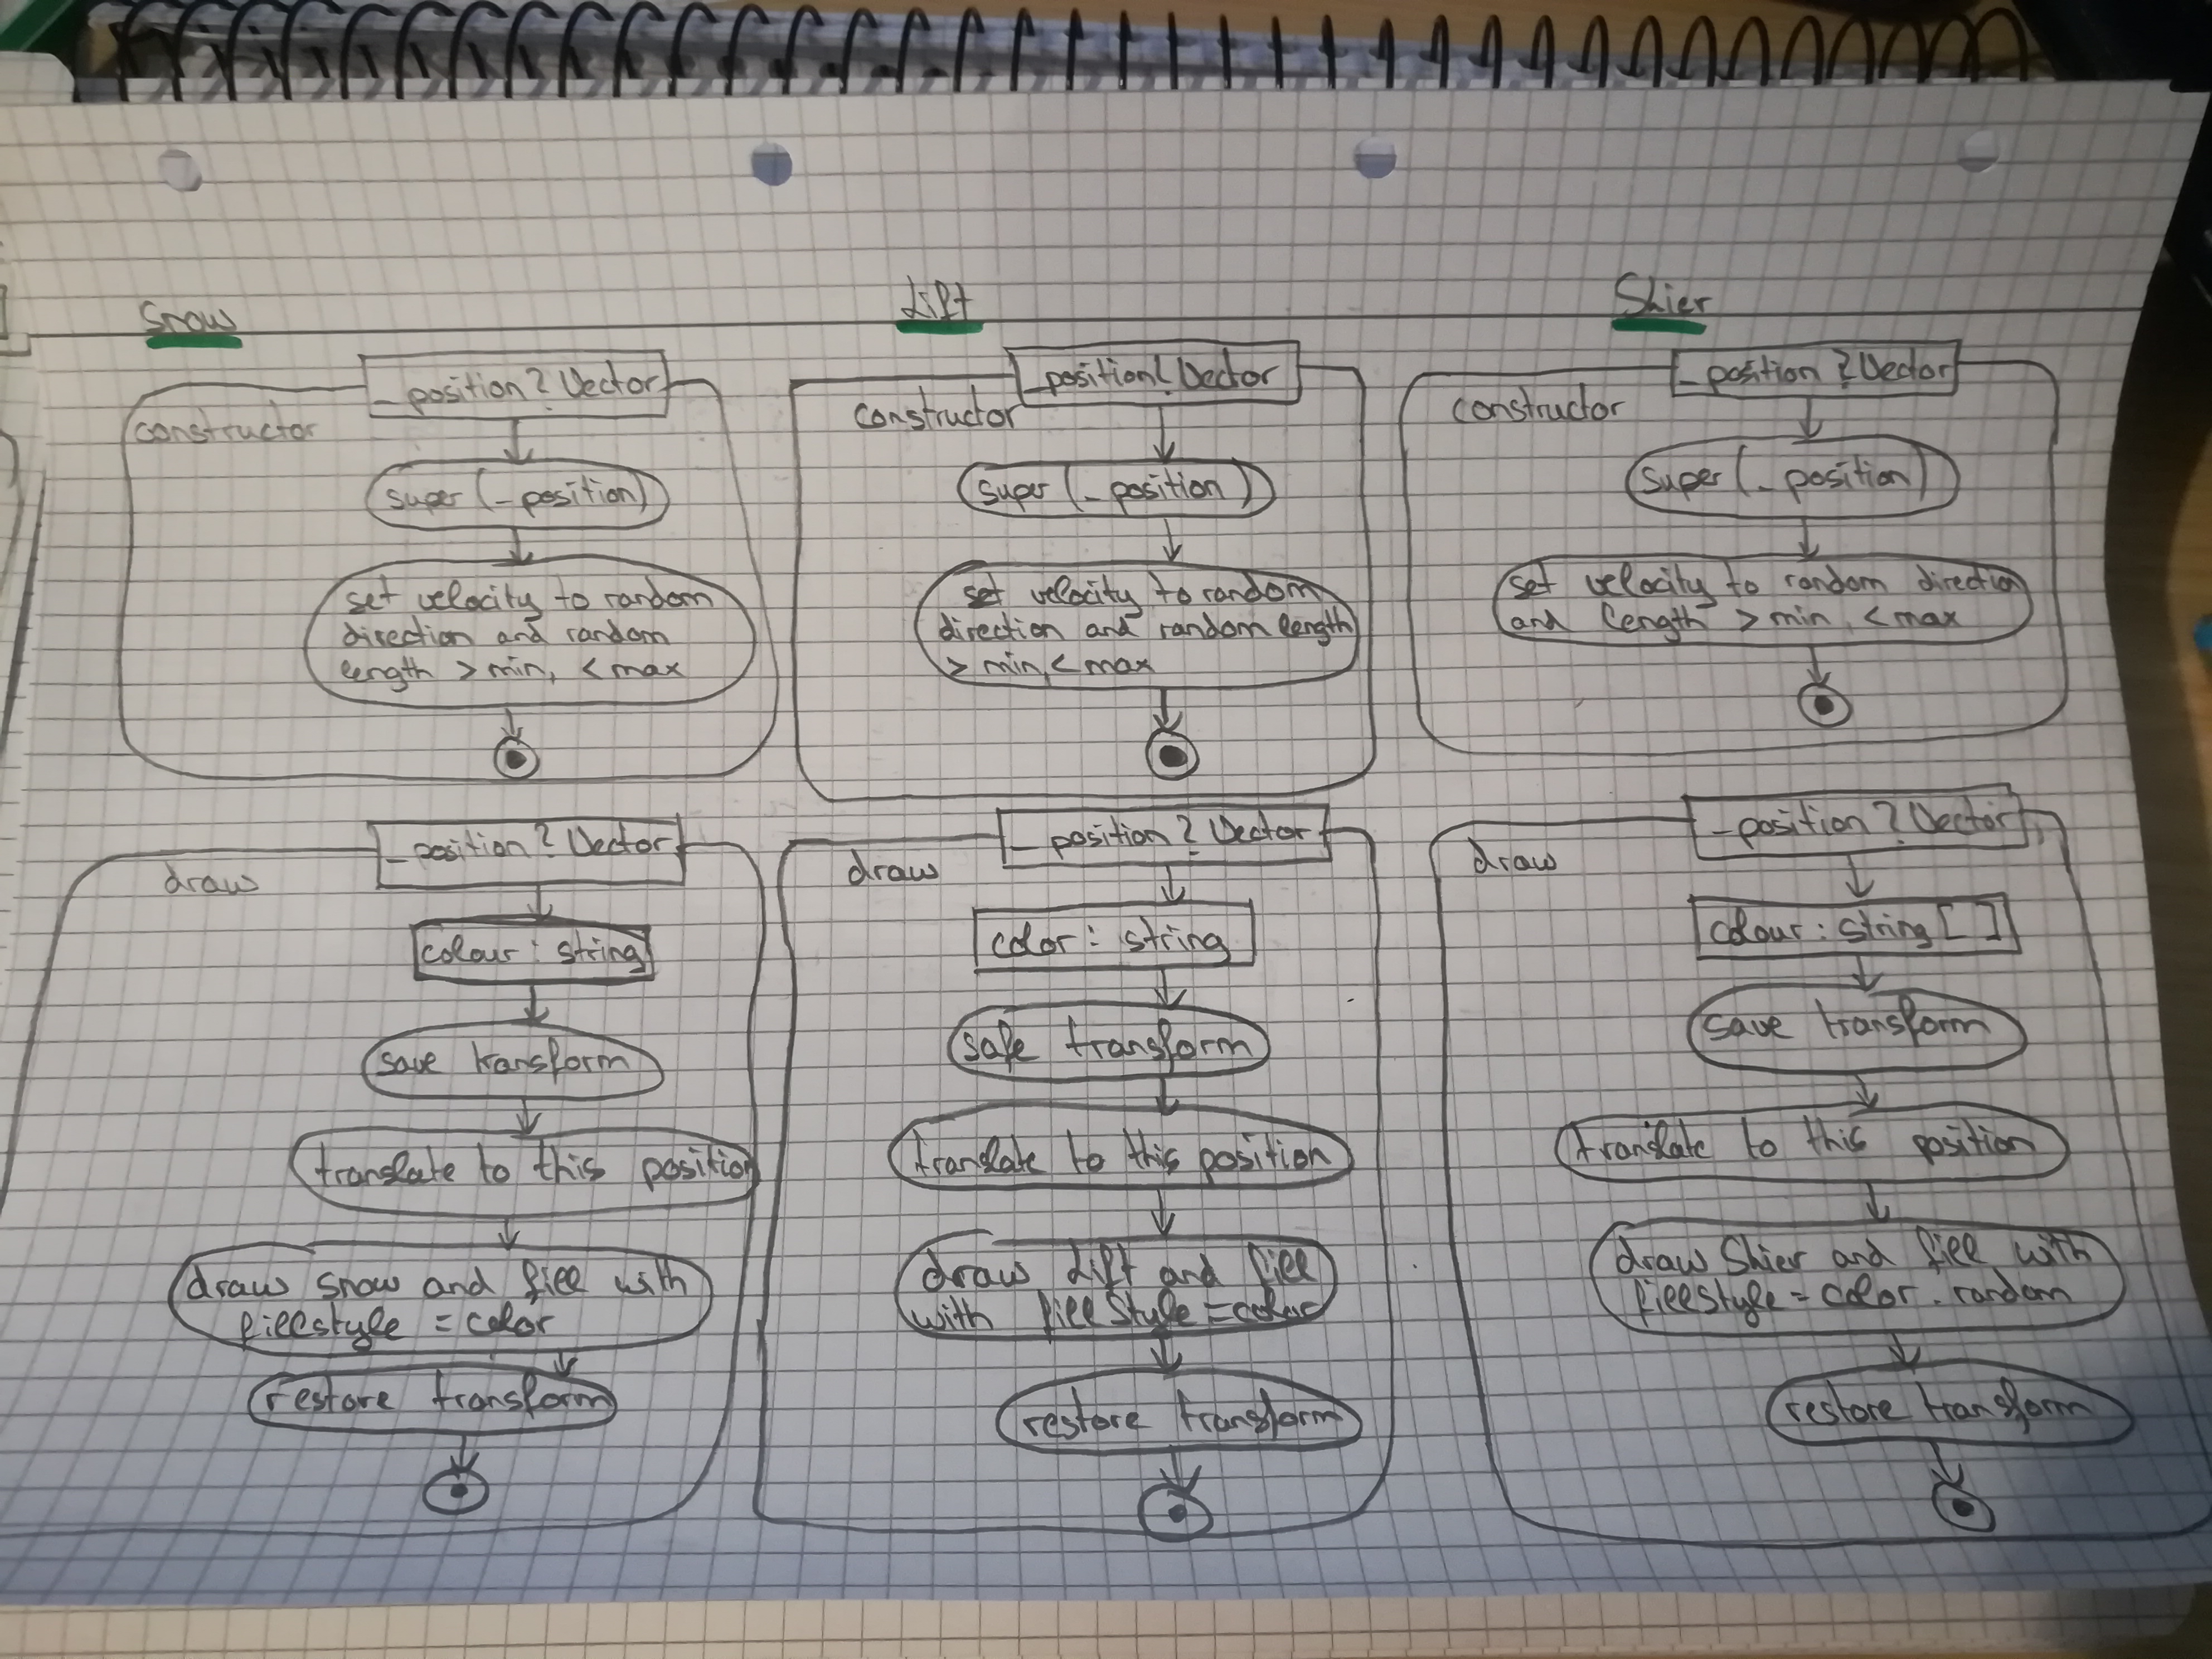 Snow
_position? Vector
constructor
super (_position)
set velocity to random
direction and random
length > min, < max
_position? Vector
draw
colour: string
save transform
translate to this position
draw snow and fill with
fillstyle = color
restore transform
Lift
_position? Vector
constructor
super (_position)
set velocity to random
direction and random length
> min, < max
_position? Vector
draw
color: string
safe transform
translate to this position
draw Lift and fill
with fillStyle = color
restore transform
Skier
_position? Vector
constructor
super (_position)
set velocity to random direction
and length > min, < max
_position? Vector
draw
colour: string []
save transform
translate to this position
draw Skier and fill with
fillstyle = color.random
restore transform